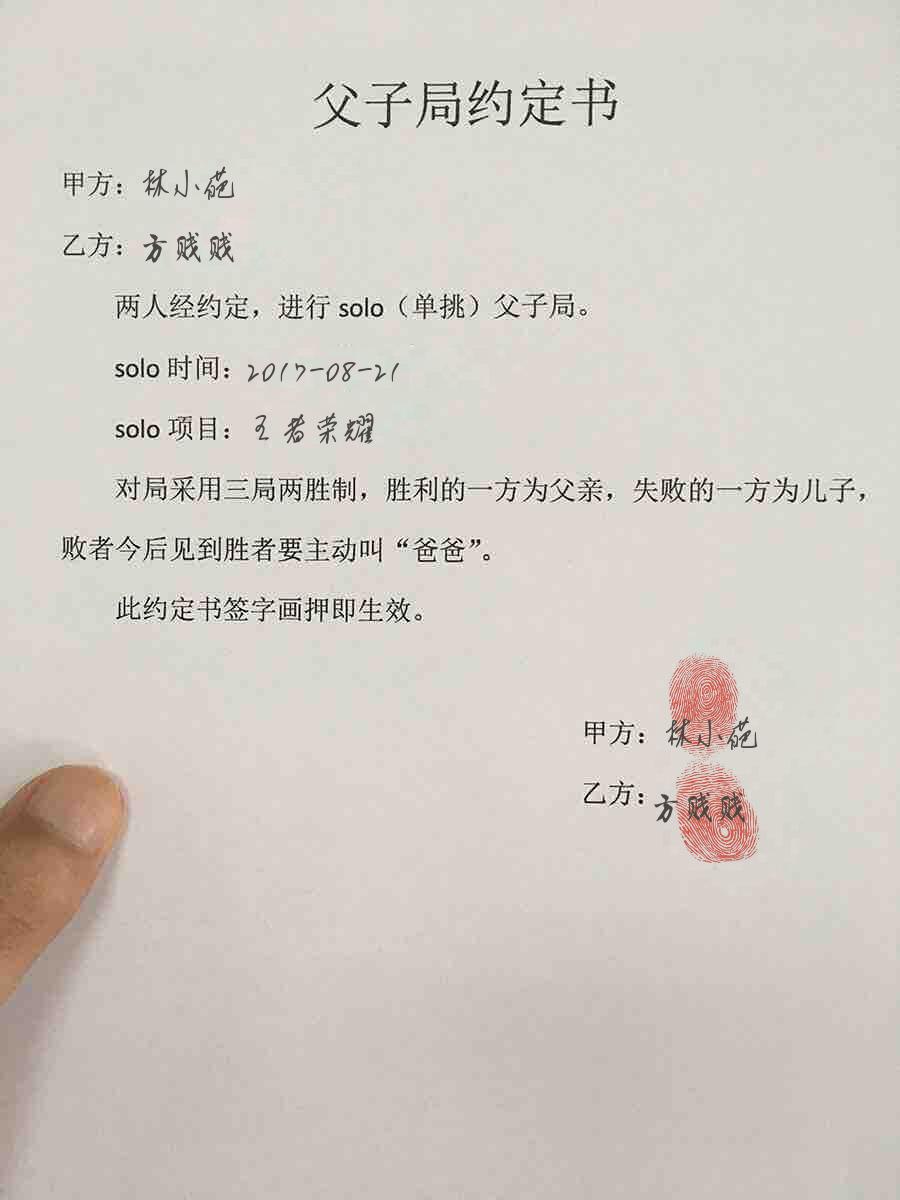 父子局约定书
甲方：林小葩
乙方：方贱贱
两人经约定，进行 solo（单挑）父子局。
solo 时间：2017-08-21
solo 项目：王者荣耀
对局采用三局两胜制，胜利的一方为父亲，失败的一方为儿子，
败者今后见到胜者要主动叫“爸爸”。
此约定书签字画押即生效。
甲方：林小葩
乙方：方贱贱